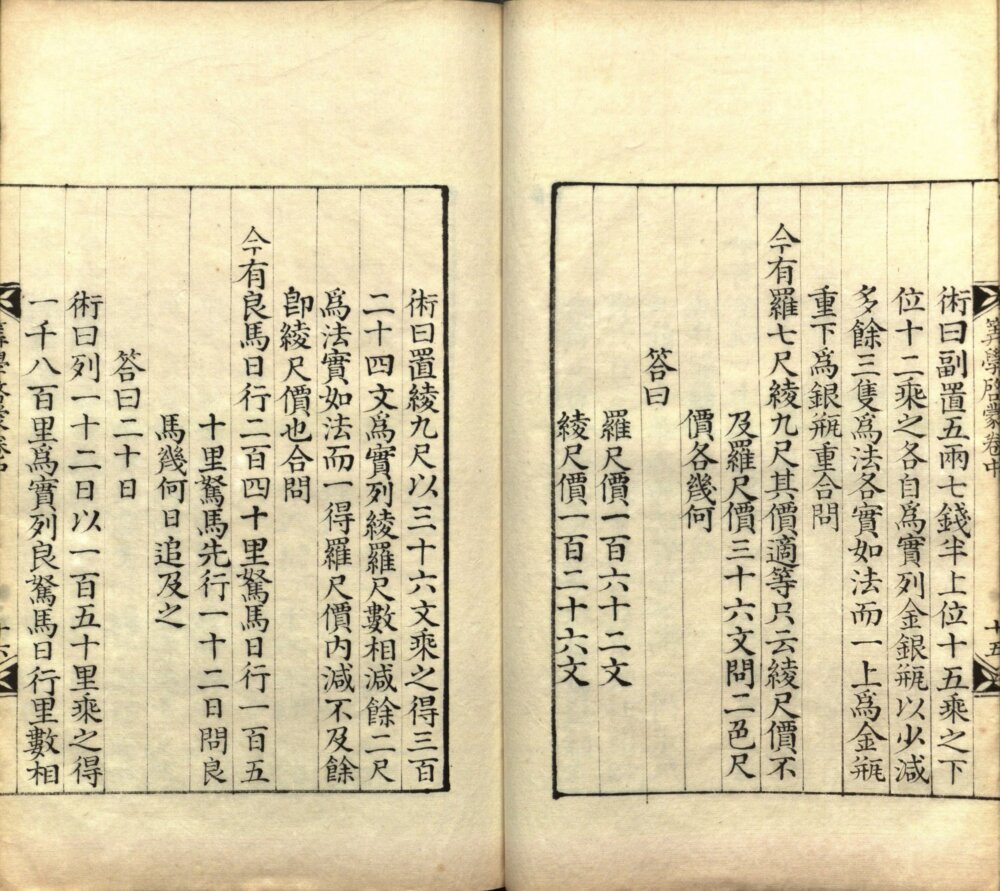 筭學啓蒙卷中
十五
術曰副置五兩七錢半上位十五乘之下
位十二乘之各自爲實列金銀瓶以少減
多餘三隻爲法各實如法而一上爲金瓶
重下爲銀瓶重合問
今有羅七尺綾九尺其價適等只云綾尺價不
及羅尺價三十六文問二色尺
價各幾何
答曰
羅尺價一百六十二文
綾尺價一百二十六文
術曰置綾九尺以三十六文乘之得三百
二十四文爲實列綾羅尺數相減餘二尺
爲法實如法而一得羅尺價內減不及餘
卽綾尺價也合問
今有良馬日行二百四十里駑馬日行一百五
十里駑馬先行一十二日問良
馬幾何日追及之
答曰二十日
術曰列一十二日以一百五十里乘之得
一千八百里爲實列良駑馬日行里數相